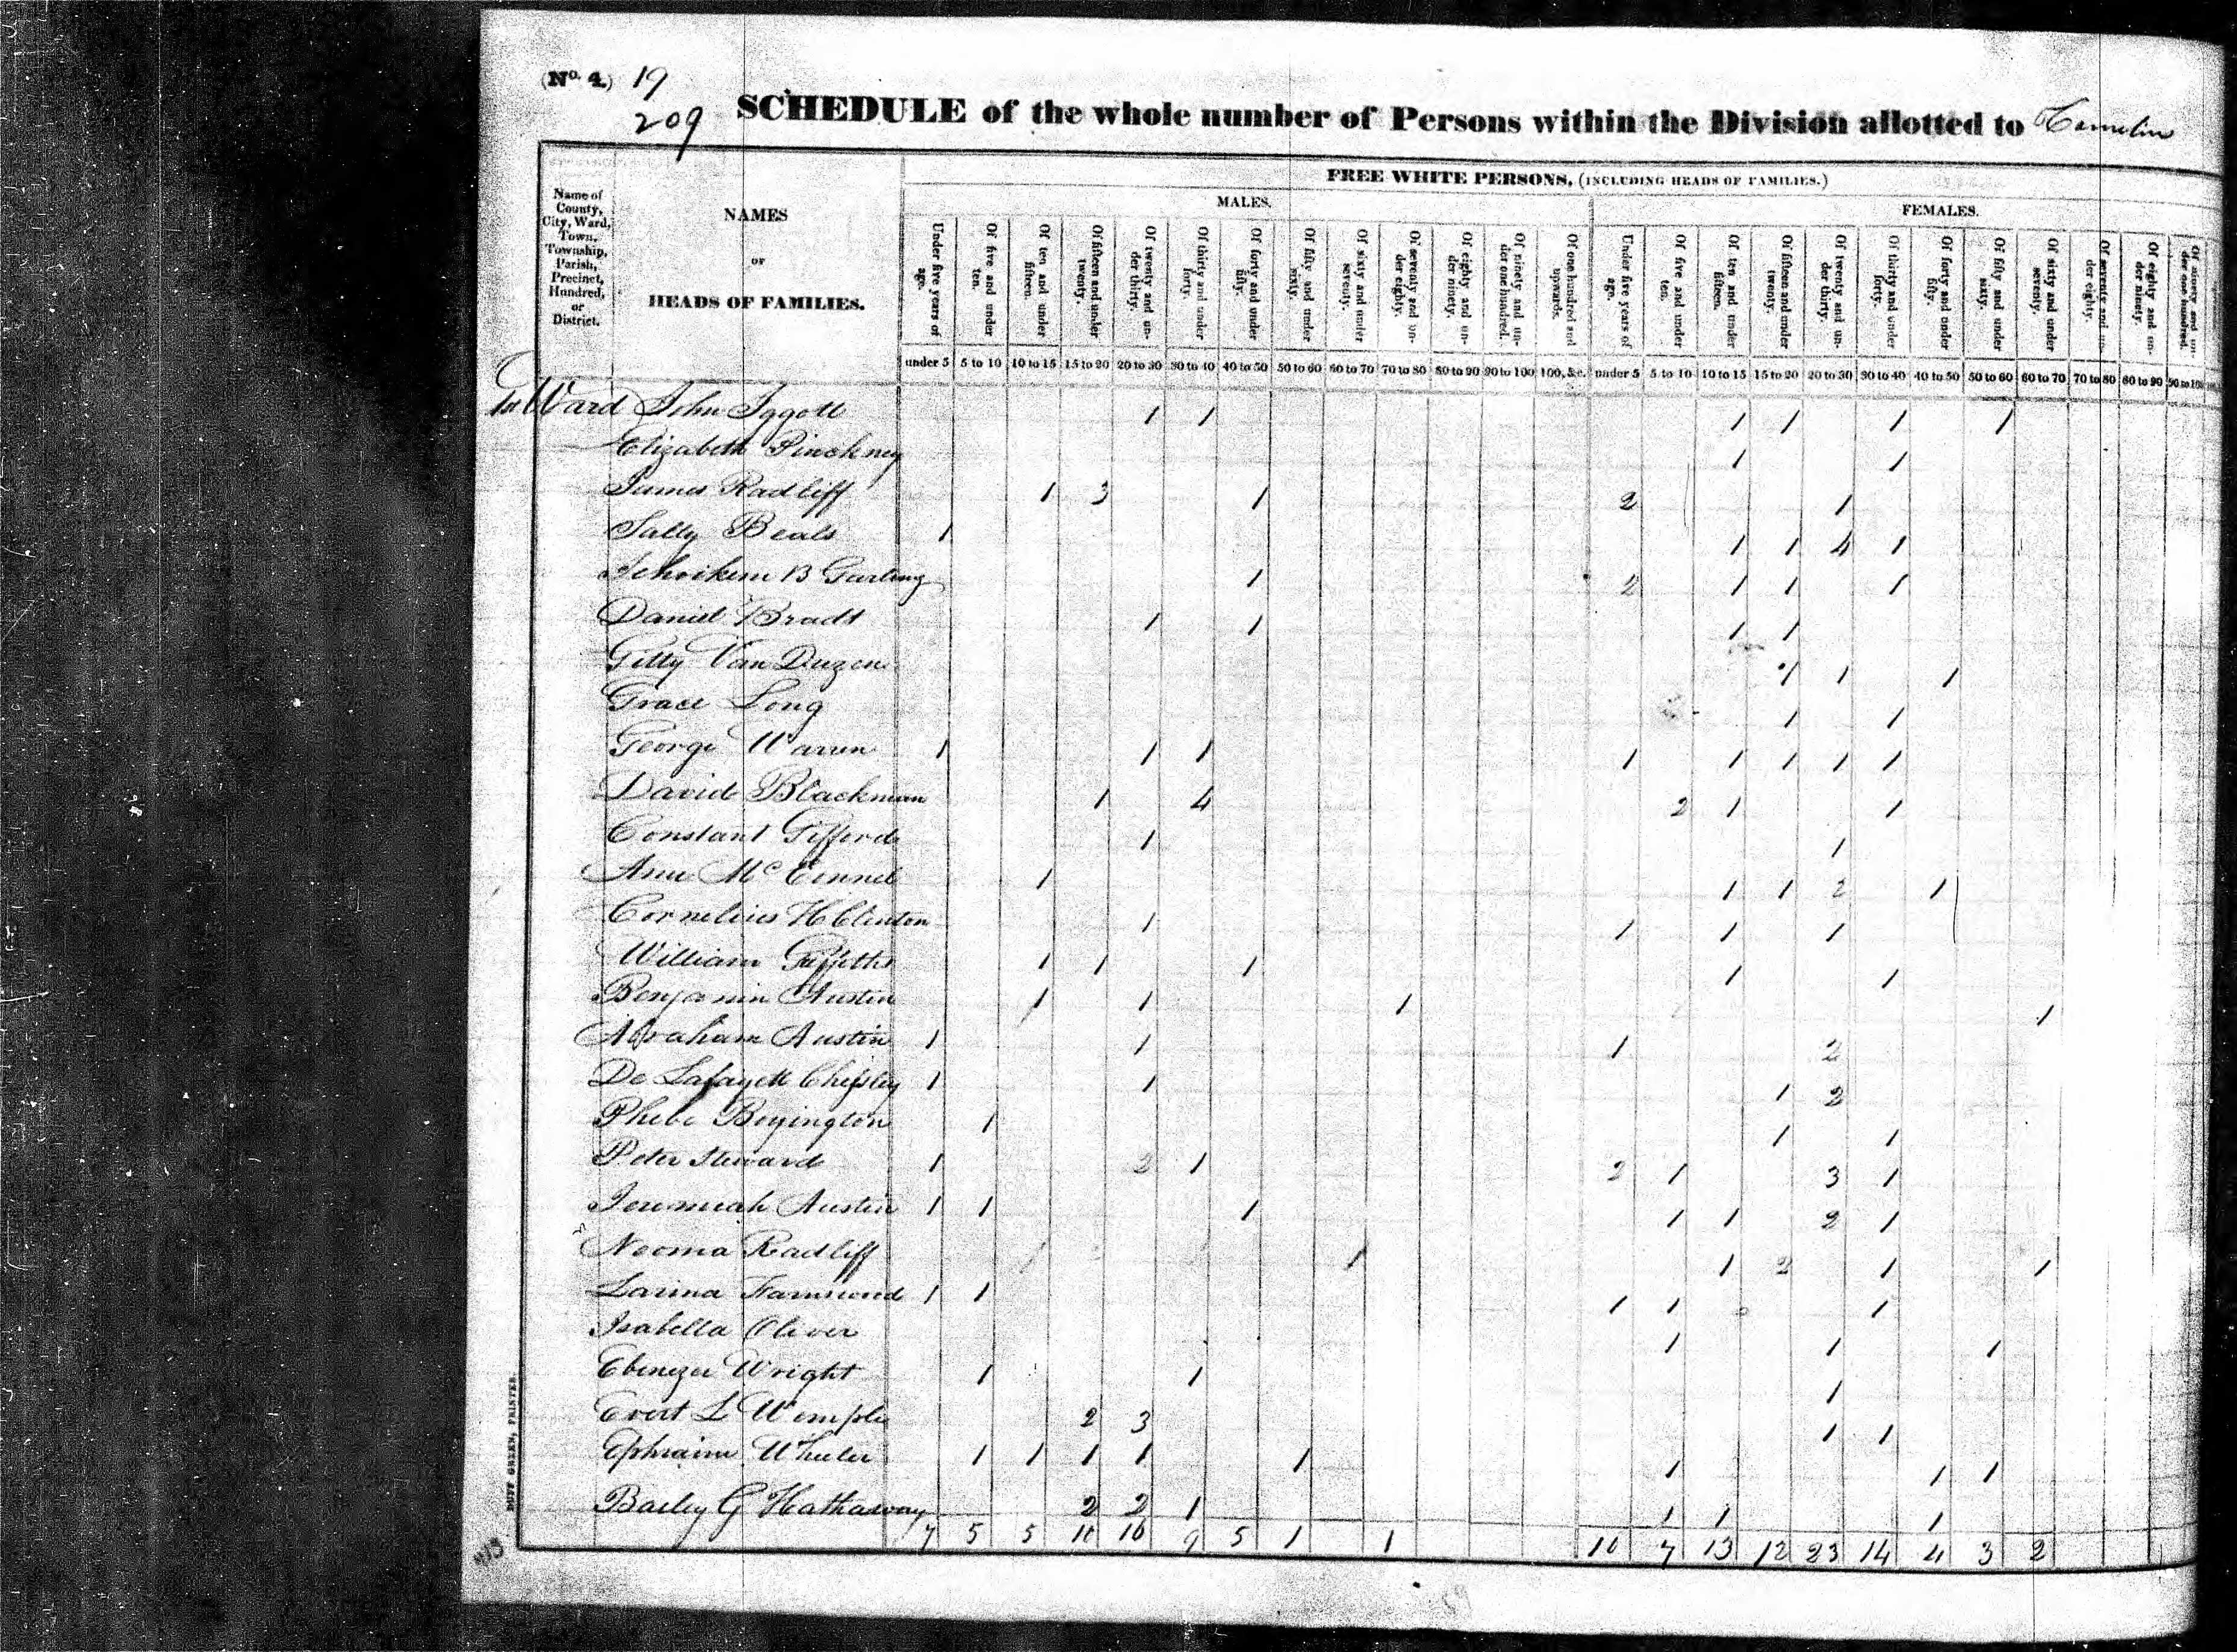 (No. 4.) 19
209 SCHEDULE of the whole number of Persons within the Division allotted to
FREE WHITE PERSONS, (INCLUDING HEADS OF FAMILIES.)
MALES. FEMALES.
Name of County, City, Ward, Town, Township, Parish, Precinct, Hundred, or District.
NAMES
OF
HEADS OF FAMILIES.
Under five years of age. Of five and under ten. Of ten and under fifteen. Of fifteen and under twenty. Of twenty and under thirty. Of thirty and under forty. Of forty and under fifty. Of fifty and under sixty. Of sixty and under seventy. Of seventy and under eighty. Of eighty and under ninety. Of ninety and under one hundred. Of one hundred and upwards. Under five years of age. Of five and under ten. Of ten and under fifteen. Of fifteen and under twenty. Of twenty and under thirty. Of thirty and under forty. Of forty and under fifty. Of fifty and under sixty. Of sixty and under seventy. Of seventy and under eighty. Of eighty and under ninety. Of ninety and under one hundred.
under 5 5 to 10 10 to 15 15 to 20 20 to 30 30 to 40 40 to 50 50 to 60 60 to 70 70 to 80 80 to 90 90 to 100 100, &c. under 5 5 to 10 10 to 15 15 to 20 20 to 30 30 to 40 40 to 50 50 to 60 60 to 70 70 to 80 80 to 90 90 to 100
1st Ward John Iggott 1 1 1 1 1 1
Elizabeth Pinckney 1 1
James Radliff 1 3 1 2 1
Sally Beals 1 1 1 4 1
B 1 2 1 1 1
Daniel Bradt 1 1 1 1
Gitty Van Duzen 1 1 1
Grace Long 1 1
George Warren 1 1 1 1 1 1 1 1
David Blackman 1 4 2 1 1
Constant Gifford 1 1
Ann 1 1 1 2 1
Cornelius H Clinton 1 1 1 1
William Griffiths 1 1 1 1 1
Benjamin Austin 1 1 1 1
Abraham Austin 1 1 1 2
De Lafayett 1 1 1 2
Phebe Boyington 1 1 1
Peter Steward 1 2 1 2 1 3 1
Jeremiah Austin 1 1 1 1 1 2 1
Neoma Radliff 1 1 2 1 1
1 1 1 1 1
Isabella Oliver 1 1 1
Ebenezer Wright 1 1 1
Evert L Wemple 2 3 1 1
Ephraim Wheeler 1 1 1 1 1 1 1 1
Bailey G Hathaway 2 2 1 1 1 1
7 5 5 10 16 9 5 1 1 10 7 13 12 23 14 4 3 2
DUFF GREEN, PRINTER.